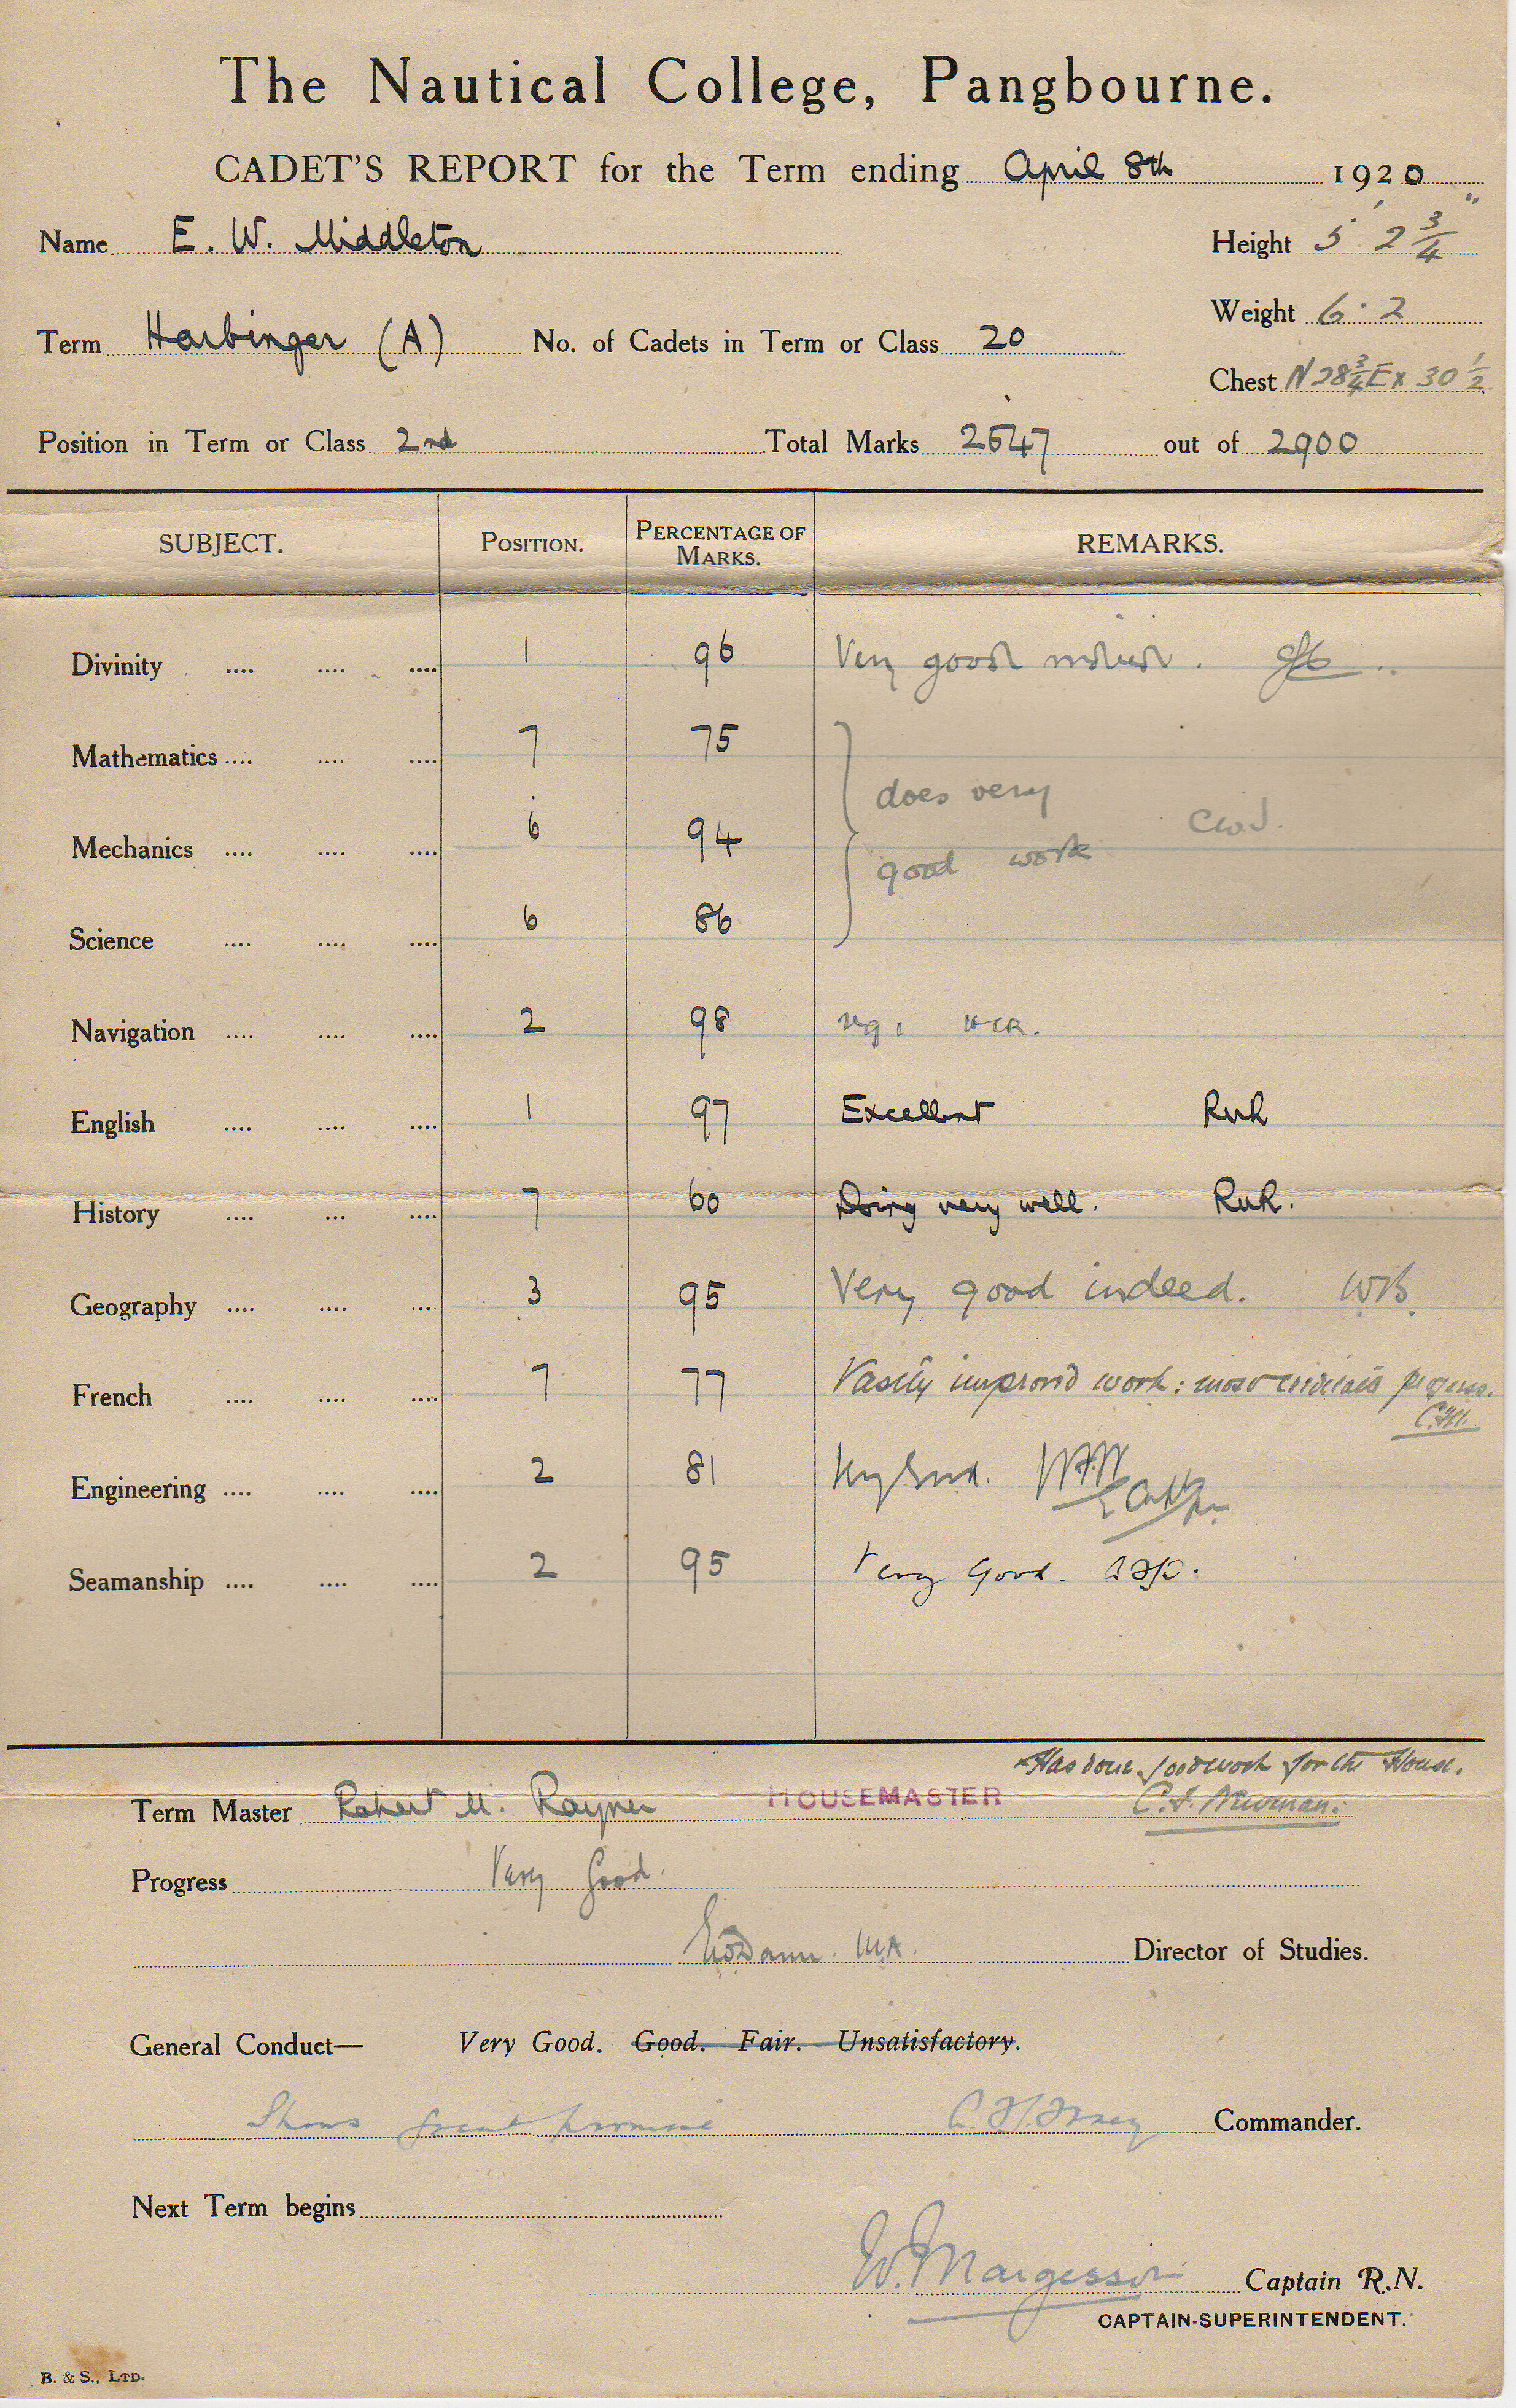 The Nautical College, Pangbourne.
CADET'S REPORT for the Term ending April 8th 1920
Name E. W. Middleton
Height 5' 2 3/4"
Term Harbinger (A) No. of Cadets in Term or Class 20
Weight 6. 2
Chest N 28 3/4 Ex 30 1/2
Position in Term or Class 2nd Total Marks 2547 out of 2900
SUBJECT. POSITION. PERCENTAGE OF MARKS. REMARKS.
Divinity .... .... .... 1 96 Very good indeed.
Mathematics .... .... .... 7 75
does very
Mechanics .... .... .... 6 94
good work
Science .... .... .... 6 86
Navigation .... .... .... 2 98 v.g.
English .... .... .... 1 97 Excellent RMR
History .... ... .... 7 60 Doing very well. RMR.
Geography .... .... .... 3 95 Very good indeed. WB.
French .... .... .... 7 77 Vastly improved work: most creditable progress.
Engineering .... .... .... 2 81 Very Good.
Seamanship .... .... .... 2 95 Very Good.
Has done good work for the House.
Term Master Robert M. Rayner HOUSEMASTER C. F. Newman.
Progress Very Good.
MA. Director of Studies.
General Conduct— Very Good. Good. Fair. Unsatisfactory.
Shows great promise Commander.
Next Term begins
W. Margesson Captain R.N.
CAPTAIN-SUPERINTENDENT.
B. & S., LTD.